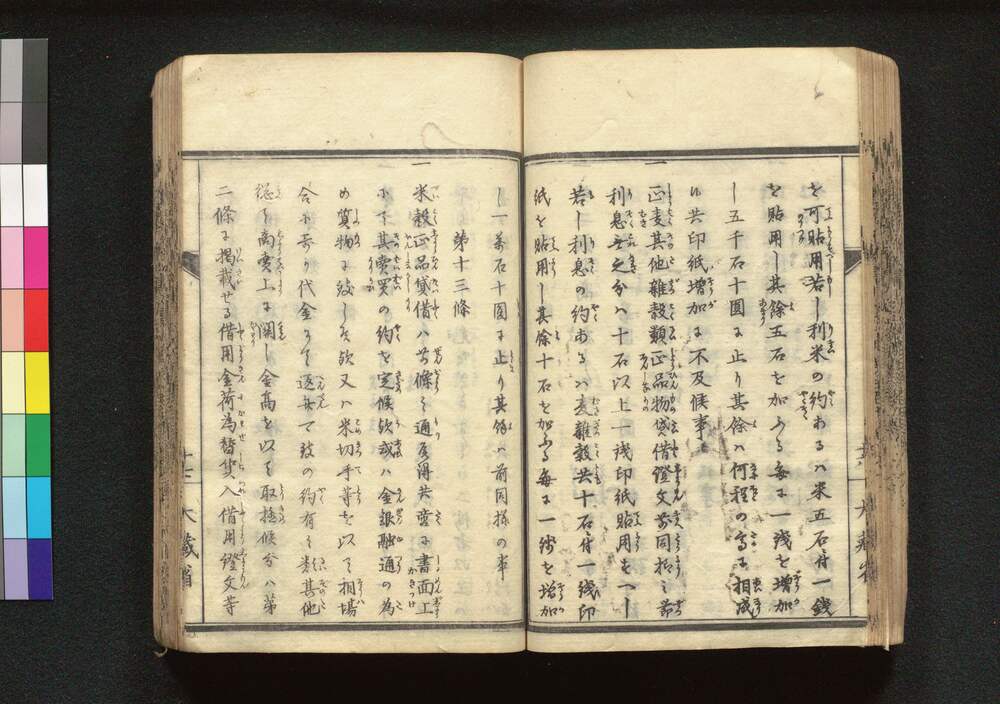 を可貼用若し利米の約ある八米五石付一錢
を貼用し其餘五石を加ふる毎に一錢を増加
し五千石十圓に止り其餘ハ何程の高に相成
共印紙増加に不及候事
一 正麦其他雑穀類正品物貸借證文前同様之
利息無之分ハ十石以上一錢印紙貼用すへし
若し利息の約あるハ麦雑穀共十石付一錢印
紙を貼用し其餘十石を加ふる毎に一錢を増加
し一萬石十圓に止り其餘ハ前同様の事
第十三條
一 米穀正品貸借ハ前條之通可得共書面上
に其賣買の約を定候欤或ハ金銀融通の為
め質物に致し候欤又ハ米切手等を以て相場
合に寄り代金にて返弁可致の約有之類其他
総て商賣上に関し金高を以て取極候分ハ第
二條に掲載せる借用金荷為替質入借用證文等
大蔵省
大蔵省